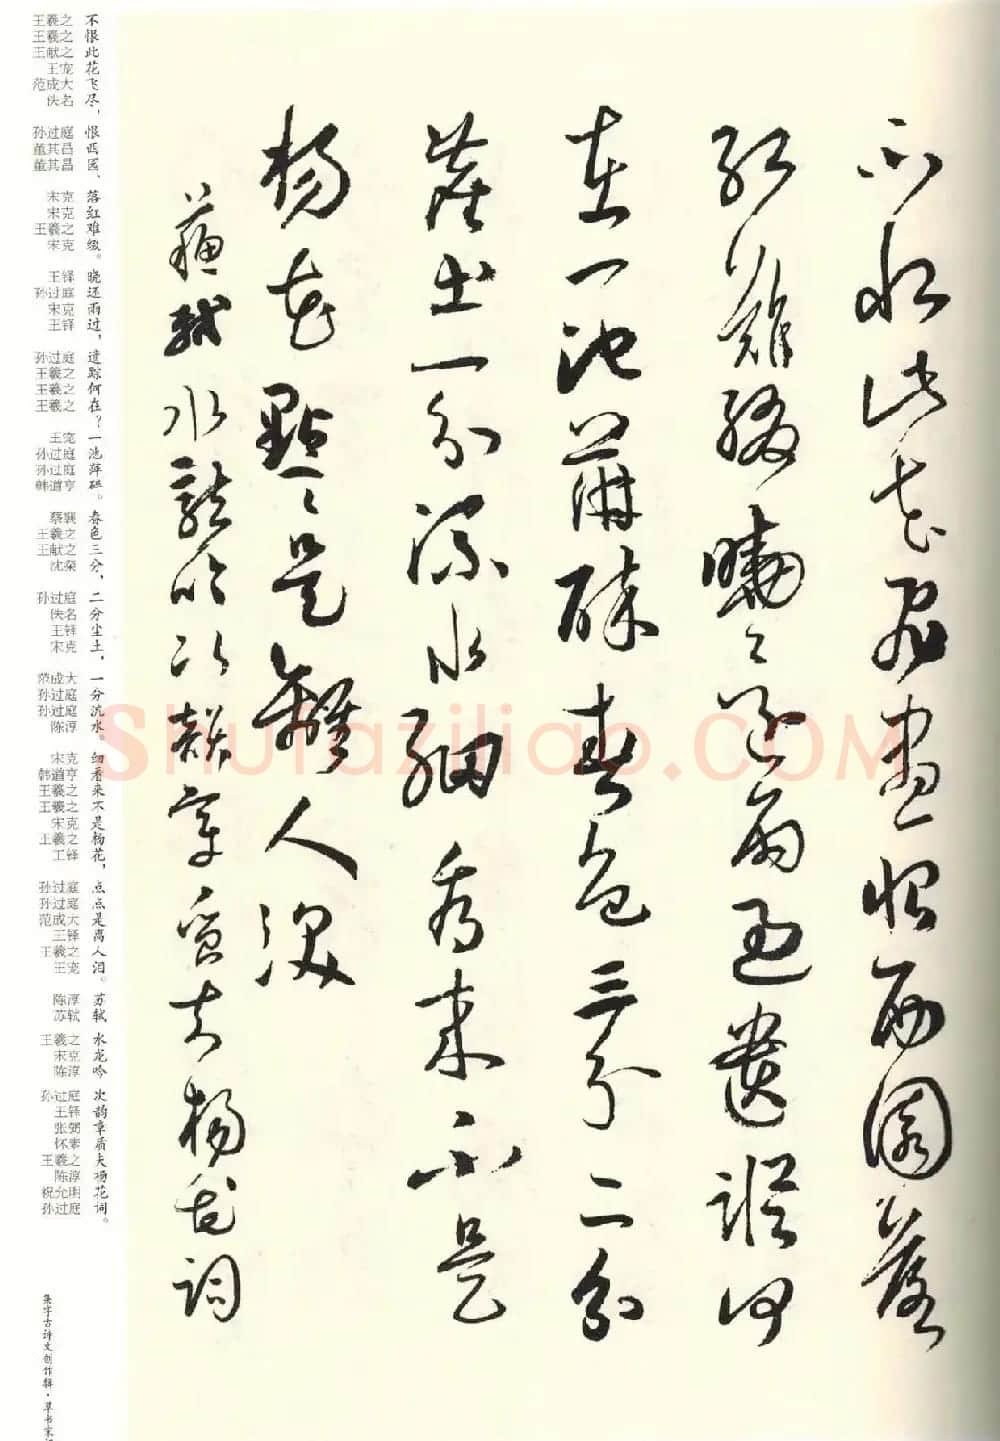 不恨此花飛盡恨西園落
紅難綴曉還雨過遺蹤何
在一池萍碎春色三分二分
塵土一分流水細看來不是
楊花點點是離人淚
蘇軾水龍吟次韻章質夫楊花詞
不恨此花飞尽，恨西园、落红难缀。晓还雨过，遗踪何在？一池萍碎。春色三分，二分尘土，一分流水。细看来不是杨花，点点是离人泪。苏轼 水龙吟 次韵章质夫杨花词。
王羲之 王羲之 王献之 王宠 范成大 佚名 孙过庭 董其昌 董其昌 宋克 宋克 王羲之 宋克 王铎 孙过庭 宋克 王铎 孙过庭 王羲之 王羲之 王羲之 王宠 孙过庭 孙过庭 韩道亨 蔡襄 王羲之 王献之 沈粲 孙过庭 佚名 王铎 宋克 范成大 孙过庭 孙过庭 陈淳 宋克 韩道亨 王羲之 王羲之 宋克 王羲之 王铎 孙过庭 孙过庭 范成大 王铎 王羲之 王宠 陈淳 苏轼 王羲之 宋克 陈淳 孙过庭 王铎 张弼 怀素 王羲之 陈淳 祝允明 孙过庭
集字古诗文创作辑·草书宋
Shufaziliao.COM